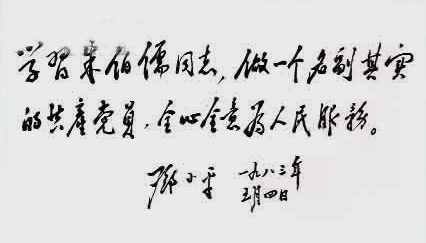 学习朱伯儒同志，做一个名副其实
的共产党员，全心全意为人民服务。
邓小平 一九八三年
五月四日